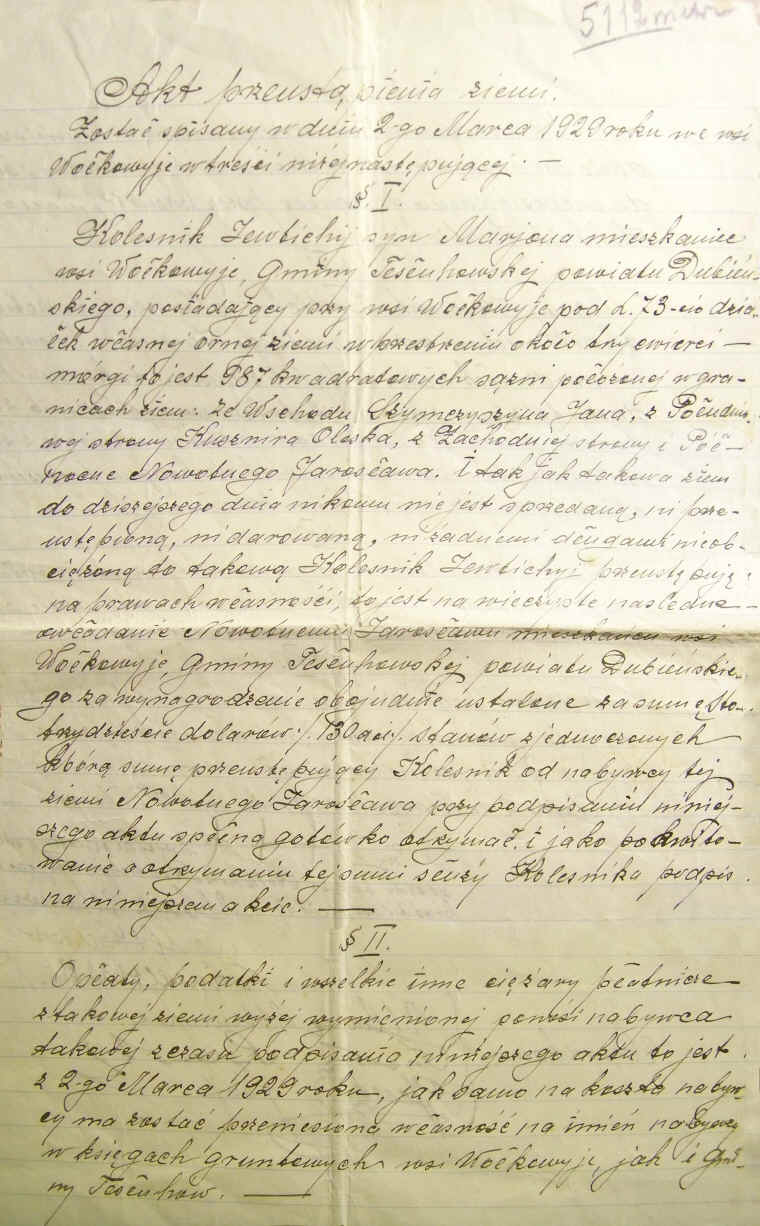 5112 metr
Akt przeustąpienia ziemi.
Został spisany w dniu 2-go Marca 1929 roku we wsi
Wołkowyje w treści niżej następującej. —
§. I.
Kolesnik Jewtichij syn Marjona mieszkaniec
wsi Wołkowyje, Gminy Tesłuhowskej powiatu Dubień-
skiego, posiadający przy wsi Wołkowyje pod L. 73-cio dzia-
łek własnej ornej ziemi w przestrzeniu około try cwierci —
mórgi to jest 987 kwadratowych sążni połozonej w gra-
nicach ziem: ze Wschodu Szymczyszyna Jana, z Południo-
wej strony Kusznira Oleska, z Zachodniej strony i Pół-
nocne Nowotnego Jarosława. I tak jak takowa ziem
do dzisiejszego dnia nikomu nie jest sprzedaną, ni prze-
ustępioną, ni darowaną, ni żadnemi długami nieob-
ciężoną to takową Kolesnik Jewtichyj przeustępują
na prawach własnośći, to jest na wieczyste nasledne —
owładanie Nowotnemu Jarosławu mieszkańcu wsi
Wołkowyje, Gminy Tesłuhowskej powiatu Dubieńskie-
go za wynagrodzenie obojudnie ustalone za sumę sto-
trzydzieście dolarów /.130 dol/. Stanów zjednoczonych
którą sumę przeustępujący Kolesnik od nabywcy tej
ziemi Nowotnego Jarosława przy podpisaniu niniej-
szego aktu spełna gotówko otrzymał, i jako pokwito-
wanie o otrzymaniu tej sumi służy Kolesnika podpis
na niniejszem akcie. —
§ II.
Opłaty, podatki i wszelkie inne ciężary płatnicze
z takowej ziemi wyżej wymienionej ponosi nabywca
takowej z czasu podpisania niniejszego aktu to jest
z 2-go Marca 1929 roku, jak samo na koszto nabyw-
cy ma zostać przeniesiona własność na imień nabywcy
w księgach gruntowych wsi Wołkowyje, jak i gmi-
ny Tesłuhow. —